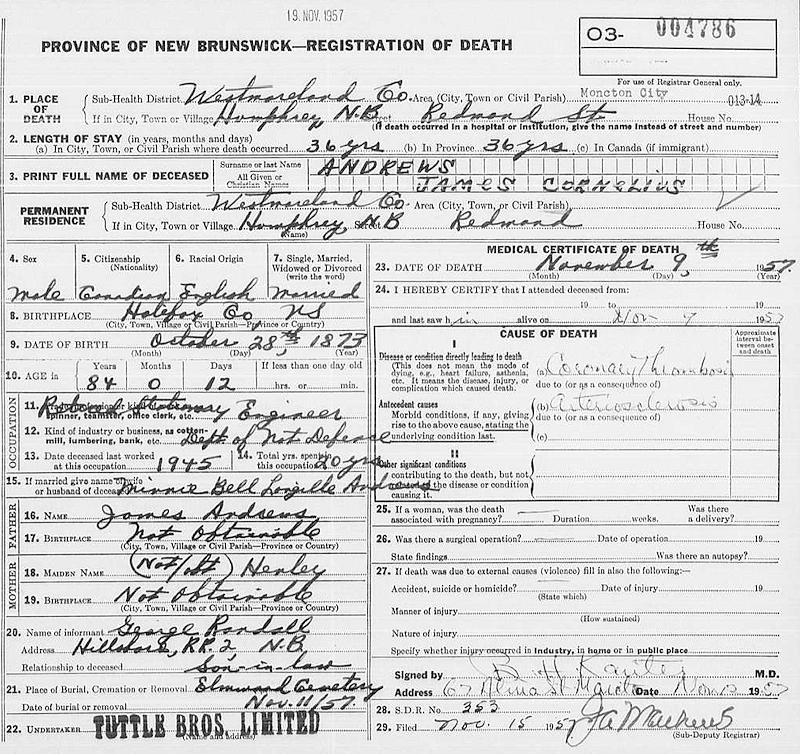 19. NOV. 1957
PROVINCE OF NEW BRUNSWICK—REGISTRATION OF DEATH
03- 004786
For use of Registrar General only.
1. PLACE OF DEATH { Sub-Health District Westmoreland Co. Area (City, Town or Civil Parish) Moncton City 013-14
If in City, Town or Village Humphrey, N.B Street Redmond St. House No.
(If death occurred in a hospital or institution, give the name instead of street and number)
2. LENGTH OF STAY (in years, months and days)
(a) In City, Town, or Civil Parish where death occurred 36 yrs (b) In Province 36 yrs (c) In Canada (if immigrant)
3. PRINT FULL NAME OF DECEASED Surname or last Name ANDREWS
All Given or Christian Names JAMES CORNELIUS
PERMANENT RESIDENCE { Sub-Health District Westmoreland Co. Area (City, Town or Civil Parish)
If in City, Town or Village Humphrey, N.B Street Redmond House No.
(Name)
4. Sex 5. Citizenship (Nationality) 6. Racial Origin 7. Single, Married, Widowed or Divorced (write the word)
Male Canadian English Married
8. BIRTHPLACE Halifax Co NS
(City, Town, Village or Civil Parish—Province or Country)
9. DATE OF BIRTH October 28th 1873
(Month) (Day) (Year)
10. AGE in { Years Months Days If less than one day old
84 0 12 hrs. or min.
OCCUPATION
11. Stationary Engineer
spinner, teamster, office clerk, etc.
12. Kind of industry or business, as cotton-mill, lumbering, bank, etc. Dept of Nat Defence
13. Date deceased last worked at this occupation 1945 14. Total yrs. spent in this occupation 20 yrs
15. If married give name of wife or husband of deceased Minnie Bell Andrews
FATHER
16. NAME James Andrews
17. BIRTHPLACE Not Obtainable
(City, Town, Village or Civil Parish—Province or Country)
MOTHER
18. MAIDEN NAME (Not Obt) Henley
19. BIRTHPLACE Not Obtainable
(City, Town, Village or Civil Parish—Province or Country)
20. Name of informant George Randall
Address Hillsboro, R.R. 2 N.B
Relationship to deceased Son-in-law
21. Place of Burial, Cremation or Removal Elmwood Cemetery
Date of burial or removal Nov. 11/57.
22. UNDERTAKER TUTTLE BROS. LIMITED
(Name and address)
MEDICAL CERTIFICATE OF DEATH
23. DATE OF DEATH November 9th, 1957.
(Month) (Day) (Year)
24. I HEREBY CERTIFY that I attended deceased from:
19 to 19
and last saw him alive on Nov 7 1957
CAUSE OF DEATH
Approximate interval between onset and death
I
Disease or condition directly leading to death
(This does not mean the mode of dying, e.g., heart failure, asthenia, etc. It means the disease, injury, or complication which caused death.
(a) Coronary Thrombosis
due to (or as a consequence of)
Antecedent causes
Morbid conditions, if any, giving rise to the above cause, stating the underlying condition last.
(b) Arteriosclerosis
due to (or as a consequence of)
(c)
II
Other significant conditions
contributing to the death, but not the disease or condition causing it.
25. If a woman, was the death associated with pregnancy? Duration weeks. Was there a delivery?
26. Was there a surgical operation? Date of operation 19
State findings Was there an autopsy?
27. If death was due to external causes (violence) fill in also the following:—
Accident, suicide or homicide? Date of injury 19
(State which)
Manner of injury
(How sustained)
Nature of injury
Specify whether injury occurred in industry, in home or in public place
Signed by M.D.
Address 67 Alma St Date Nov 1957
28. S.D.R. No 353
29. Filed Nov. 15 1957
(Sub-Deputy Registrar)